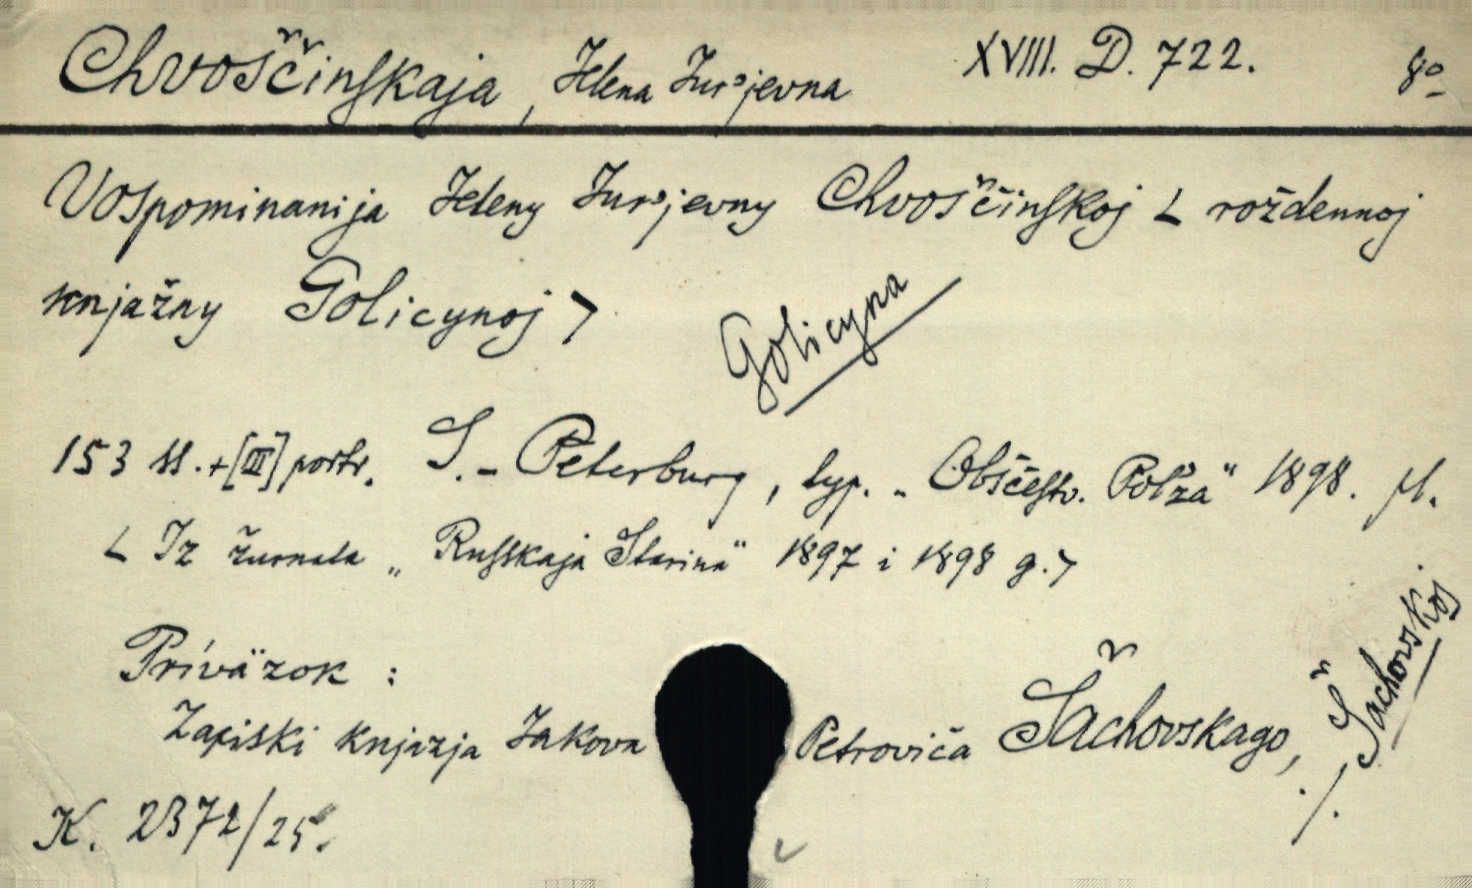 Chvoščinskaja, Jelena Jur'jevna XVIII. D. 722. 8°
Vospominanija Jeleny Jur'jevny Chvoščinskoj < roždennoj
knjažny Golicynoj >
Golicyna
153 ss. + [III] portr. S.-Peterburg, typ. „Obščestv. Pol'za" 1898. fl.
< Iz žurnala „Russkaja Starina" 1897 i 1898 g. >
Príväzok :
Zapiski knjazja Jakova Petroviča Šachovskago,
Šachovskoj
K. 2372/25. ./.